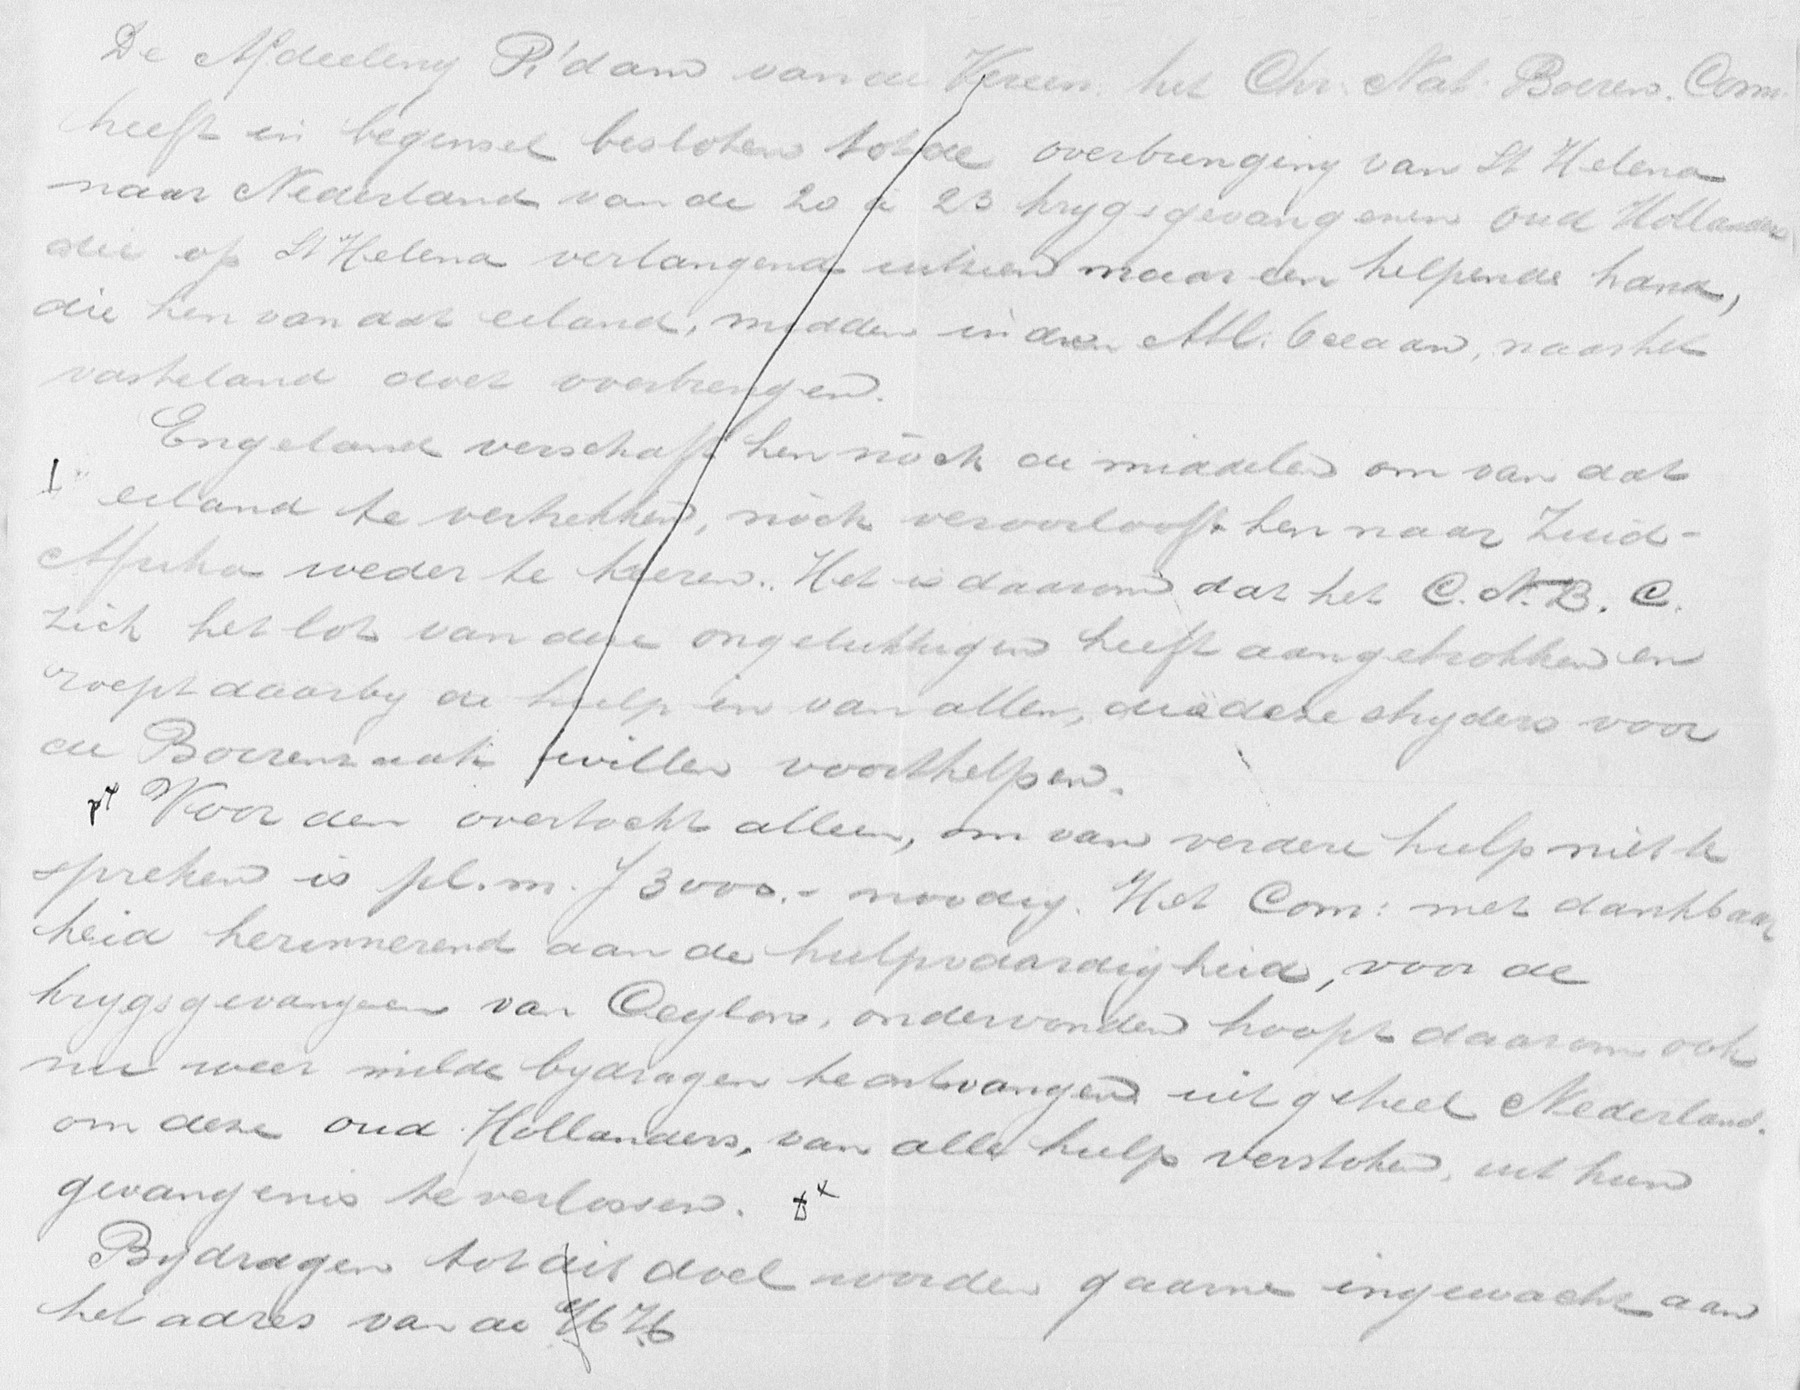 De Afdeeling R'dam van de Vereen. het Chr. Nat. Boeren. Com.
heeft in beginsel besloten tot de overbrenging van St Helena
naar Nederland van de 20 à 23 krygsgevangenen oud Hollanders
die op St Helena verlangend uitzien maar een helpende hand,
die hen van dat eiland, midden in den Atl. Oceaan, naar het
vasteland doet overbrengen.
Engeland verschaft hen nòch de middelen om van dat
eiland te vertrekken, nòch veroorlooft hen naar Zuid-
Afrika weder te keeren. Het is daarom dat het C. N. B. C.
zich het lot van deze ongelukkigen heeft aangetrokken en
roept daarby de hulp in van allen, die deze stryders voor
de Boerenzaak willen voorthelpen.
Voor den overtocht alleen, om van verdere hulp niet te
spreken is pl.m. f 3000.- noodig. Het Com: met dankbaar
heid herinnerend aan de hulpvaardigheid, voor de
krygsgevangeen van Ceylon, ondervonden hoopt daarom ook
nu weer milde bydragen te ontvangen uit geheel Nederland.
om deze oud Hollanders, van alle hulp verstoken, uit hun
gevangenis te verlossen.
Bydragen tot dit doel worden gaarne ingewacht aan
het adres van de HH